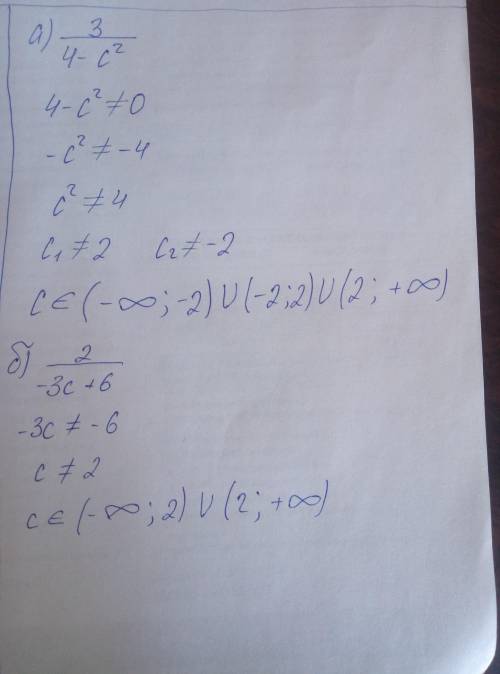 а) 3/(4-c²)
4-c²≠0
-c²≠-4
c²≠4
c₁≠2 c₂≠-2
c∈(-∞;-2)∪(-2;2)∪(2;+∞)
б) 2/(-3c+6)
-3c≠-6
c≠2
c∈(-∞;2)∪(2;+∞)